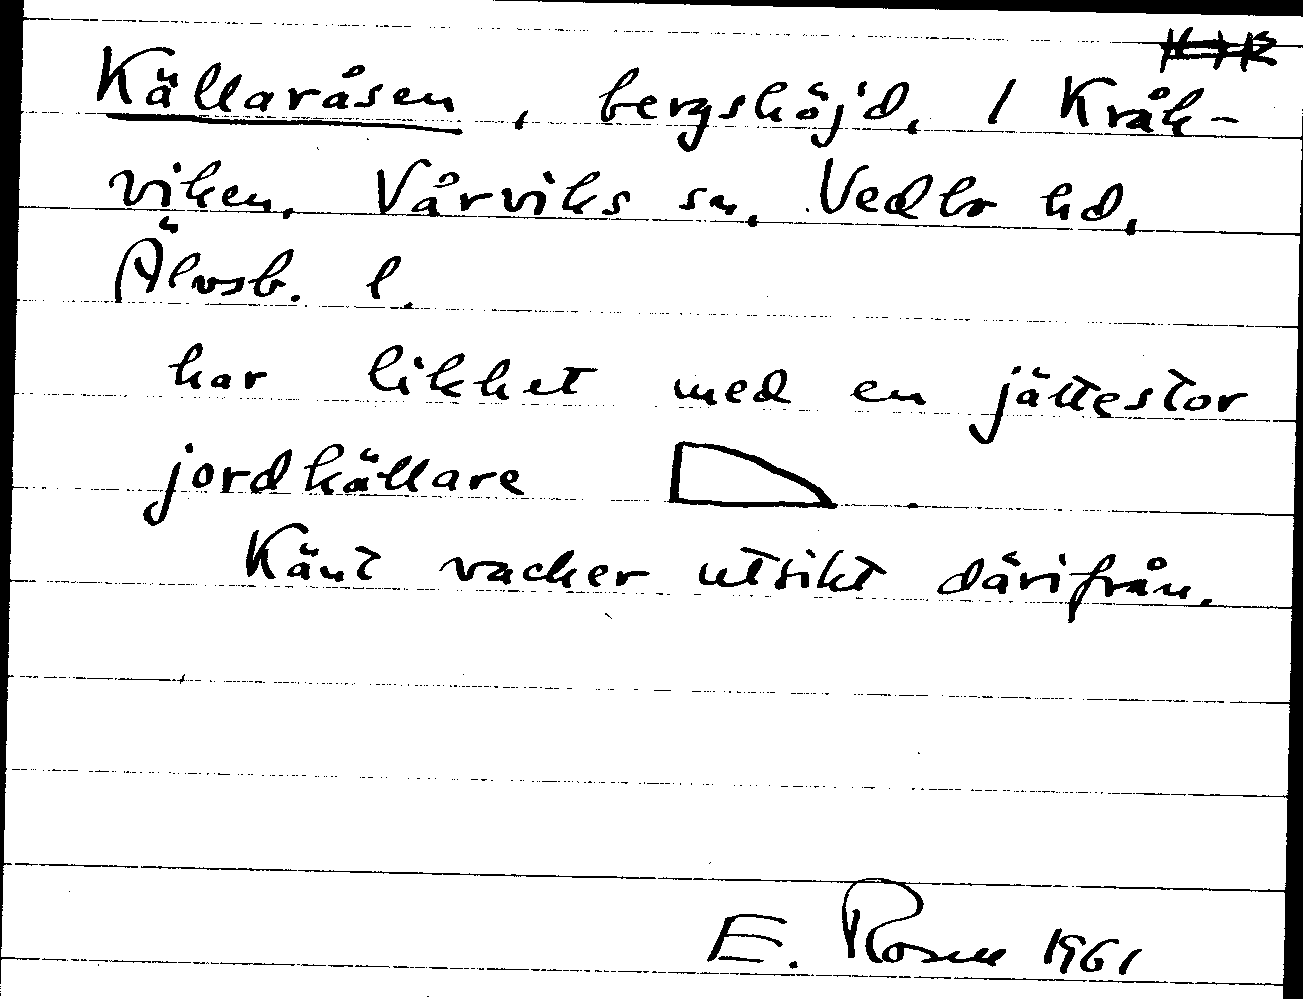 Källaråsen, bergshöjd, / Kråk-
viken, Vårviks sn, Vedbo hd,
Älvsb. l.
har likhet med en jättestor
jordkällare .
Känt vacker utsikt därifrån.
E. Rosell 1961